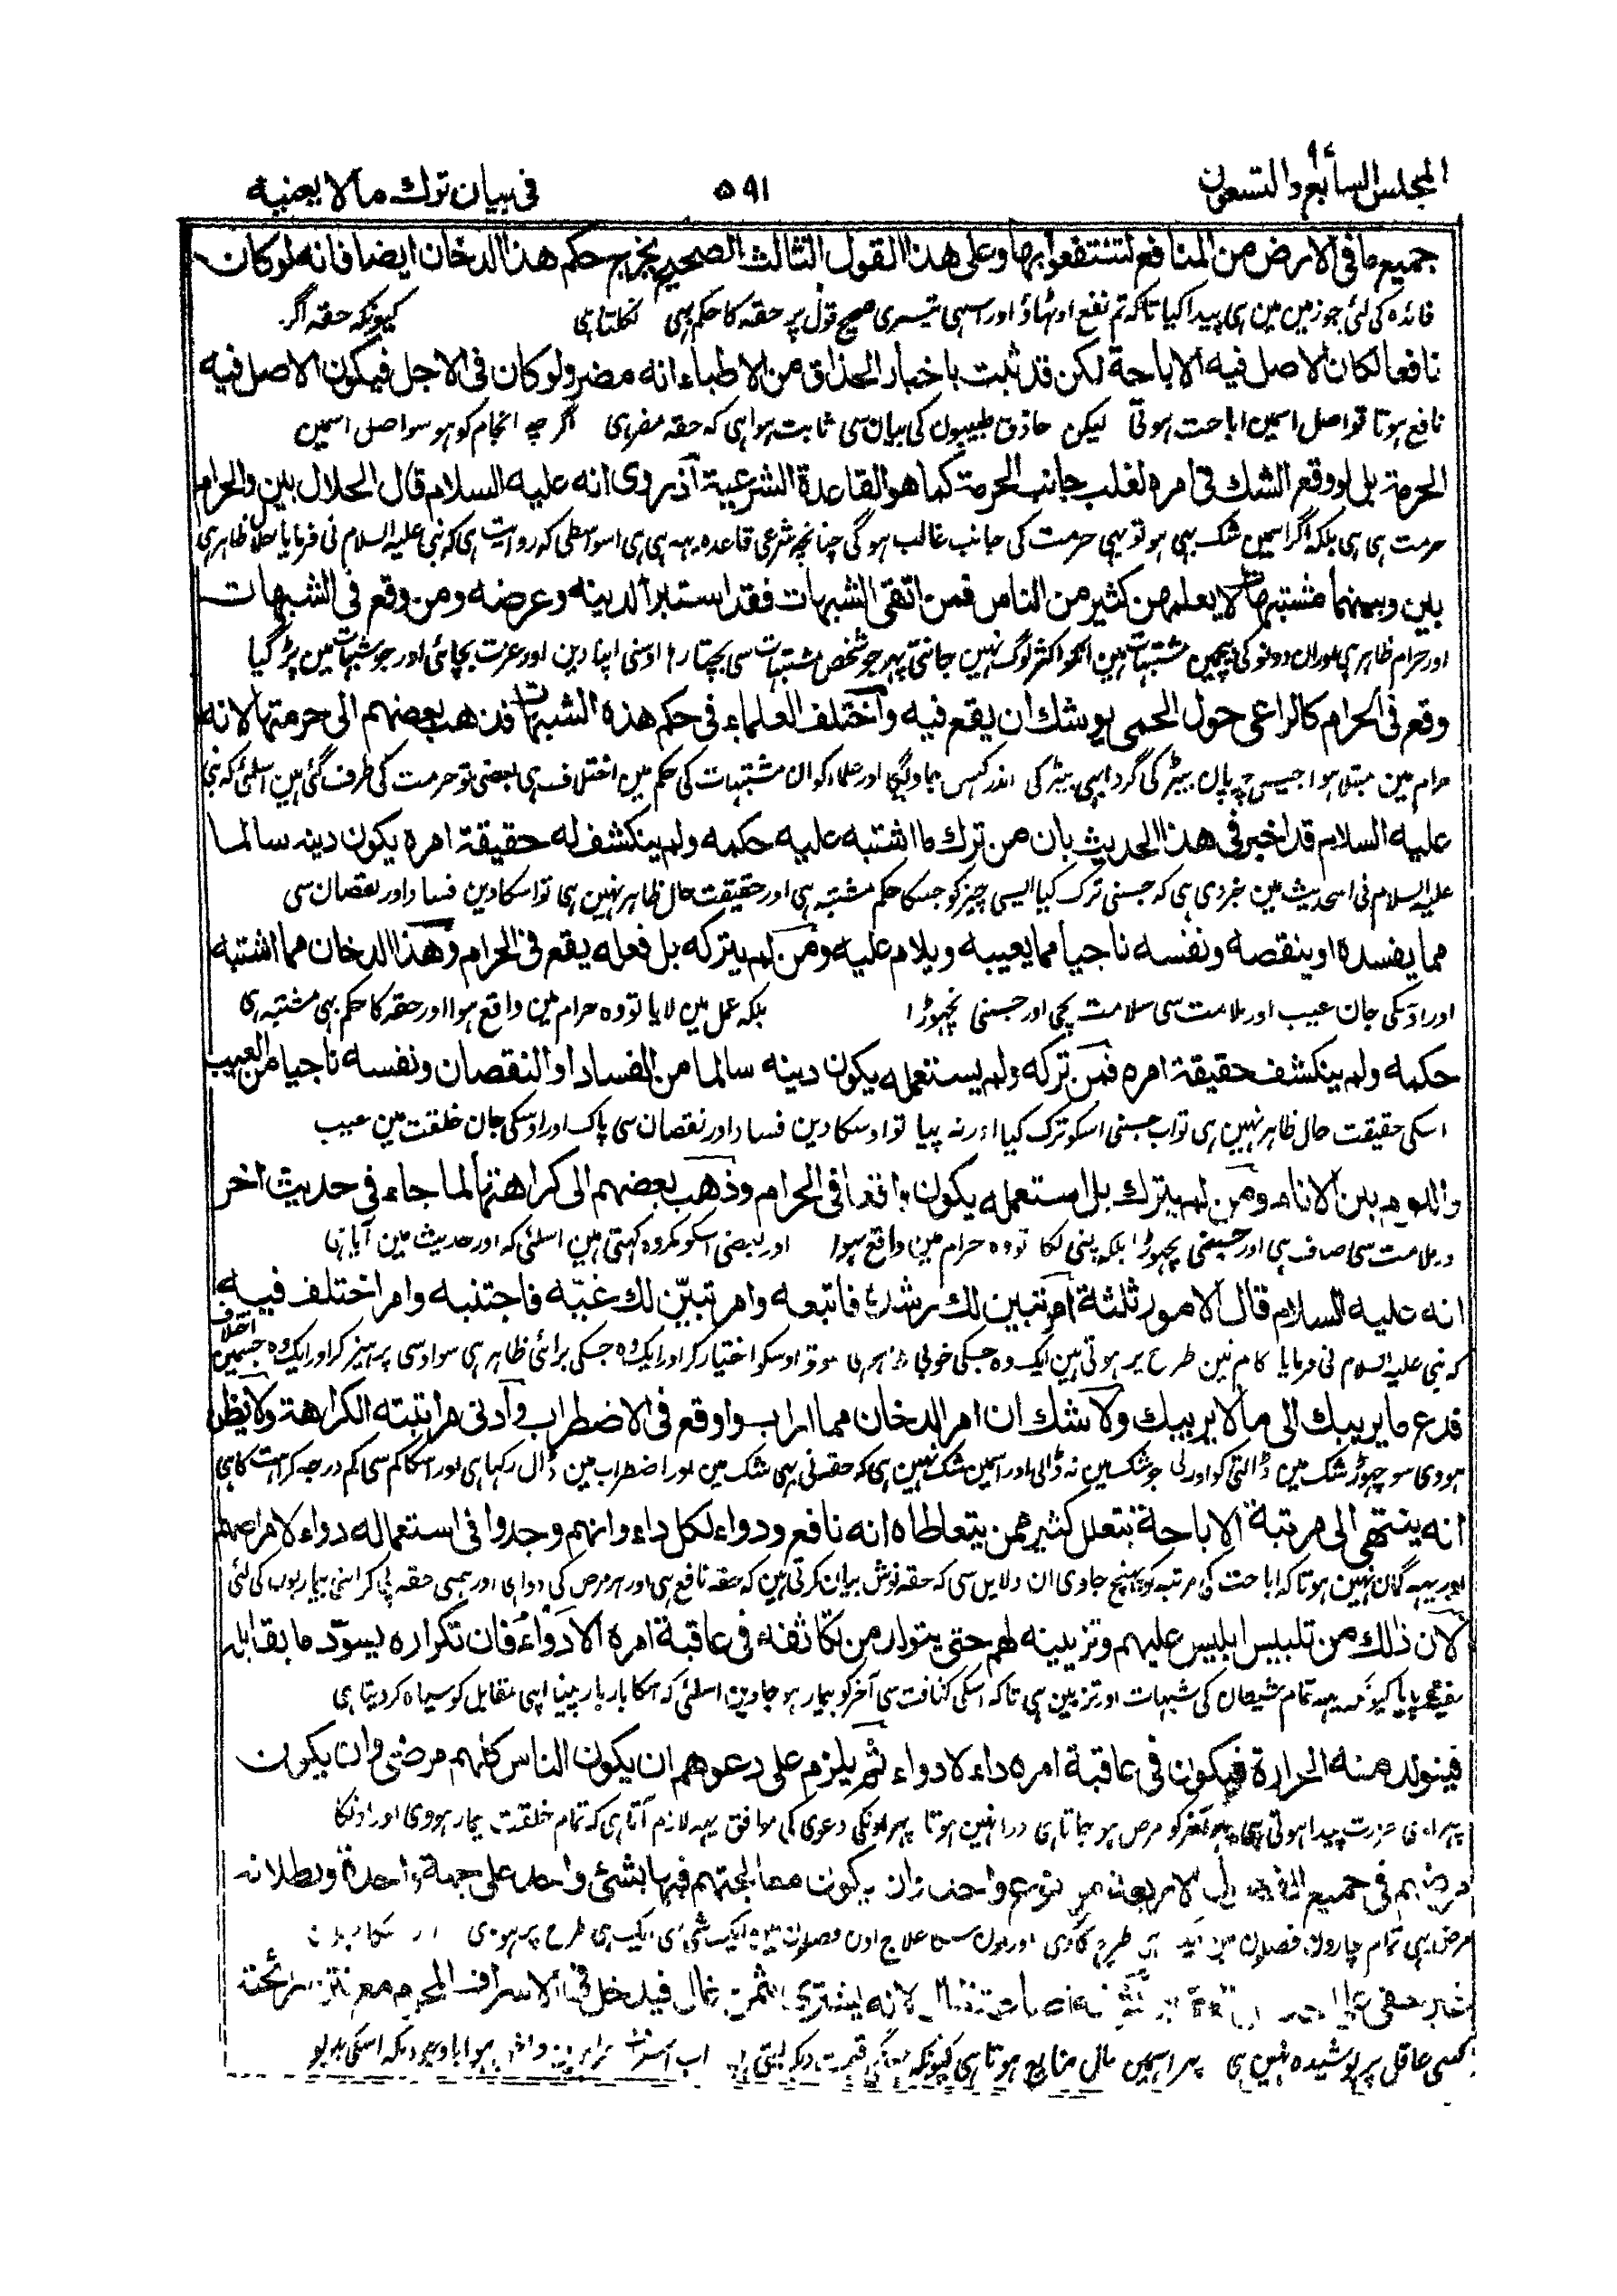 المجلس السابع والتسعون ٩٧
٥٩١
فی بیان ترك مالا یعنیه
جمیع ما فی الارض من المنافع لتنتفعوا بها وعلی هذا القول الثالث الصحیح یخرج حکم هذا الدخان ایضا فانه لو کان
فائدہ کی لئی جو زمین مین ہی پیدا کیا تاکہ تم نفع اوٹہاؤ اور اسہی تیسری صحیح قول پر حقہ کا حکم بہی نکلتا ہی کیونکہ حقہ اگر
نافعا لکان الاصل فیه الاباحة لکن قد ثبت باخبار الحذاق من الاطباء انه مضر ولو کان فی الاجل فیکون الاصل فیه
نافع ہوتا تو اصل اسمین اباحت ہوتی لیکن حاذق طبیبون کی بیان سی ثابت ہوا ہی کہ حقہ مضر ہی اگرچہ انجام کو ہو سو اصل اسمین
الحرمة بل لو وقع الشك فی امره لغلب جانب الحرمة کما هو القاعدة الشرعیة اذ روی انه علیه السلام قال الحلال بین والحرام
حرمت ہی ہی بلکہ اگر اسمین شک بہی ہو تو بہی حرمت کی جانب غالب ہو گی چنانچہ شرعی قاعدہ یہہ ہی ہی اسواسطی کہ روایت ہی کہ نبی علیہ السلام نی فرمایا حلال ظاہر ہی
بین وبینهما مشتبهات لا یعلمهن کثیر من الناس فمن اتقی الشبهات فقد استبرأ لدینه وعرضه ومن وقع فی الشبهات
اور حرام ظاہر ہی اور ان دونو کی بیچمین مشتبہات ہین انکو اکثر لوگ نہین جانتی پہر جو شخص مشتبہات سی بچتا رہا اوسنی اپنا دین اور عزت بچائی اور جو شبہات مین پڑ گیا
وقع فی الحرام کالراعی حول الحمی یوشك ان یقع فیه واختلف العلماء فی حکم هذه الشبهات فذهب بعضهم الی حرمتها لانه
حرام مین مبتلا ہوا جیسی چرپان بیٹر کی گرد ایہی بیٹر کی اندر گہس جاویگا اور علماء کو ان مشتبہات کی حکم مین اختلاف ہی بعضی تو حرمت کی طرف گئی ہین اسلئی کہ نبی
علیه السلام قد اخبر فی هذا الحدیث بان من ترك ما اشتبه علیه حکمه ولم ینکشف له حقیقة امره یکون دینه سالما
علیہ السلام نی اسحدیث مین خبر دی ہی کہ جسنی ترک کیا ایسی چیز کو جسکا حکم مشتبہ ہی اور حقیقت حال ظاہر نہین ہی تو اسکا دین فساد اور نقصان سی
مما یفسده او ینقصه ونفسه ناجیا مما یعیبه ویلام علیه ومن لم یترکه بل فعله یقع فی الحرام وهذا الدخان مما اشتبه
اور اوسکی جان عیب اور ملامت سی سلامت بچی اور جسنی نچہوڑا بلکہ عمل مین لایا تو وہ حرام مین واقع ہوا اور حقہ کا حکم بہی مشتبہ ہی
حکمه ولم ینکشف حقیقة امره فمن ترکه ولم یستعمله یکون دینه سالما من الفساد او النقصان ونفسه ناجیا من العیب
اسکی حقیقت حال ظاہر نہین ہی تو اب جسنی اسکو ترک کیا اور نہ پیا تو اوسکا دین فساد اور نقصان سی پاک اور اوسکی جان خلقت مین عیب
واللوم بین الانام ومن لم یترك بل استعمله یکون واقعا فی الحرام وذهب بعضهم الی کراهتها لما جاء فی حدیث اخر
و ملامت سی صاف ہی اور جسنی نچہوڑا بلکہ پنی لگا تو وہ حرام مین واقع ہوا اور بعضی اسکو مکروہ کہتی ہین اسلئی کہ اور حدیث مین آیا ہی
انه علیه السلام قال الامور ثلثة امر تبین لك رشده فاتبعه وامر تبیّن لك غیّه فاجتنبه وامر اختلف فیه
کہ نبی علیہ السلام نی فرمایا کام تین طرح پر ہوتی ہین ایک وہ جسکی خوبی ظاہر ہی سو تو اوسکو اختیار کر اور ایک وہ جسکی برائی ظاہر ہی سو اوسی پرہیز کر اور ایک وہ جسمین اختلاف
فدع ما یریبك الی ما لا یریبك ولا شك ان امر الدخان مما اراب واوقع فی الاضطراب وادنی مرتبته الکراهة ولا یظن
ہووی سو چہوڑ شک مین ڈالتی کو اور لی جو شکمین نہ ڈالی اور اسمین شک نہین ہی کہ حقہ نی بہی شک مین اور اضطراب مین ڈال رکہا ہی اور اسکا کم سی کم درجہ کراہت کا ہی
انه ینتهی الی مرتبة الاباحة بتعلل کثیر ممن یتعاطاه انه نافع ودواء لکل داء وانهم وجدوا فی استعماله دواء لامراضهم
اور یہہ گمان نہین ہوتا کہ اباحت کی مرتبہ کو پہنچ جاوی ان دلایل سی کہ حقہ نوش بیان کرتی ہین کہ حقہ نافع ہی اور ہر مرض کی دوا ہی اور ہمنی حقہ پی کر اپنی بیماریون کی لئی
لان ذلك من تلبیس ابلیس علیهم وتزیینه لهم حتی یتولد من تکاثفه فی عاقبة امره الادواء فان تکراره یسوّد ما یقابله
نفع پایا کیونکہ یہہ تمام شیطان کی شبہات اور تزیین ہی تاکہ اسکی کثافت سی آخر کو بیمار ہو جاوین اسلئی کہ اسکا بار بار پینا اپنی مقابل کو سیاہ کر دیتا ہی
فیتولد منه الحرارة فیکون فی عاقبة امره داء لا دواء ثم یلزم علی دعوهم ان یکون الناس کلهم مرضی وان یکون
پہر اوسی حرارت پیدا ہوتی ہی پہر آخر کو مرض ہو جاتا ہی دوا نہین ہوتا پہر اونکی دعوی کی موافق یہہ لازم آتا ہی کہ تمام خلقت بیمار ہووی اور اونکا
مرضهم فی جمیع الفصول الاربعة من نوع واحد وان یکون معالجتهم فیها بشئ واحد علی جهة واحدة وبطلانه
مرض بہی تمام چارون فصلون مین طرح کا ہوی اور علاج اون فصلون مین ایک شی ہی ایک ہی طرح پر ہووی
غیر خفی لانه یشتری بثمن غال فیدخل فی الاسراف المحرم مع نتن رائحته
کسی عاقل پر پوشیدہ نہین ہی پہر اسمین مال ضایع ہوتا ہی کیونکہ قیمت دیکر لیتی ہین